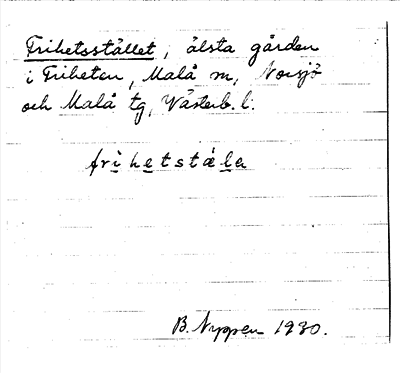 Frihetsstället, älsta gården
i Friheten, Malå sn, Norsjö
och Malå tg, Västerb. l.
frihetstäla
B. Nyppen 1930.